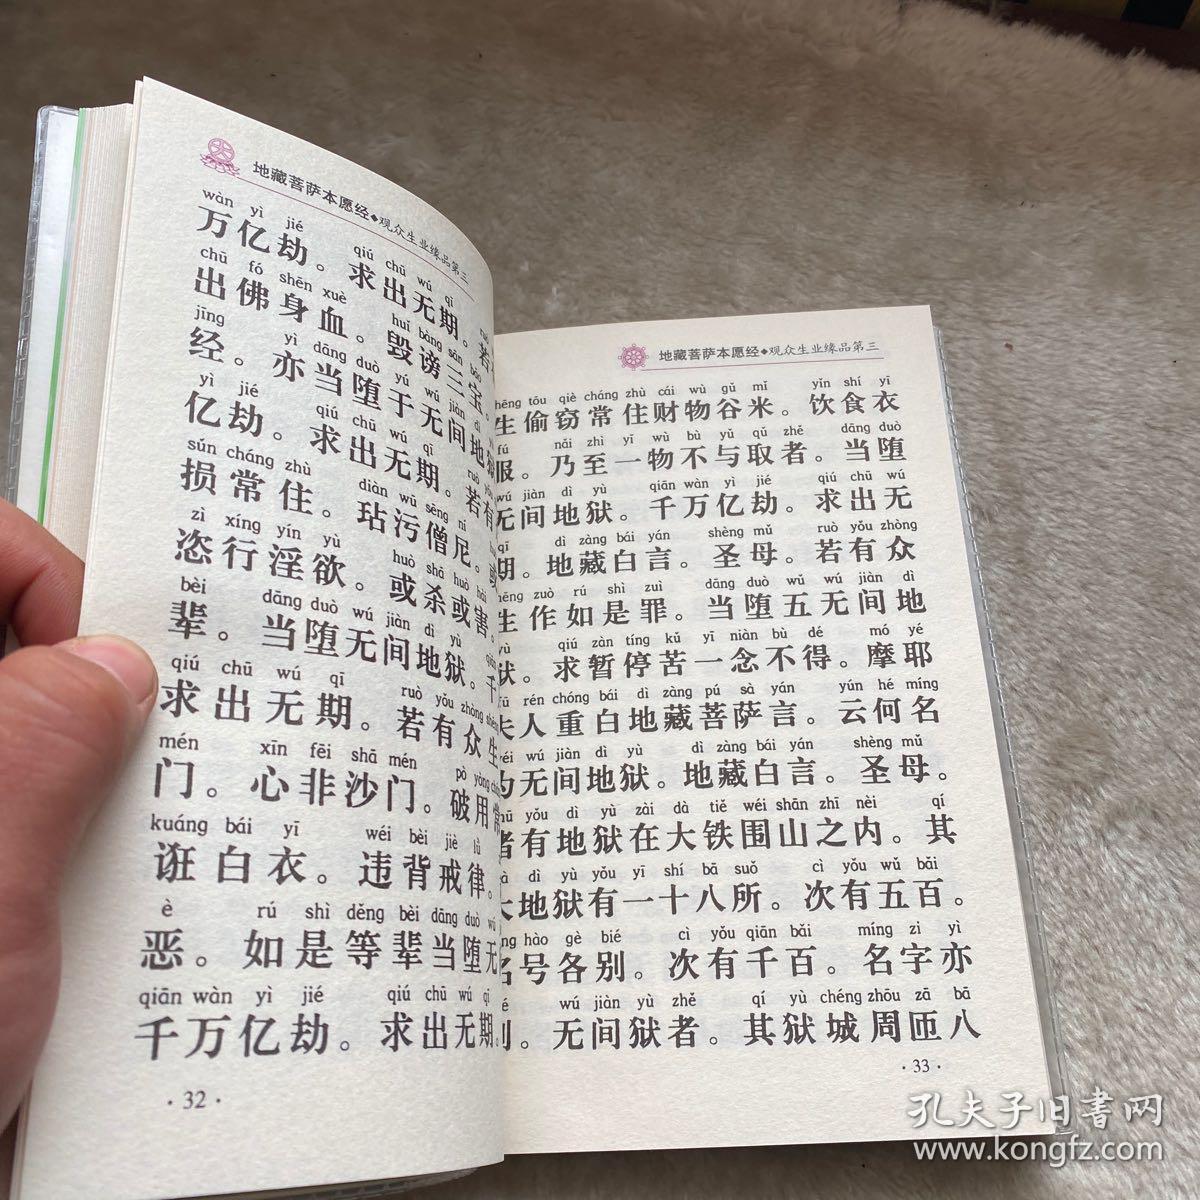 地藏菩萨本愿经◆观众生业缘品第三
wàn yì jié qiú chū wú qī
万亿劫。求出无期。若
chū fó shēn xuè huǐ bàng sān bǎo
出佛身血。毁谤三宝。
jīng yì dāng duò yú wú jiàn dì
经。亦当堕于无间地狱
yì jié qiú chū wú qī ruò yǒu
亿劫。求出无期。若有
sǔn cháng zhù diàn wū sēng ní
损常住。玷污僧尼。或
zì xíng yín yù huò shā huò hài
恣行淫欲。或杀或害。
bèi dāng duò wú jiàn dì yù qiān
辈。当堕无间地狱。千
qiú chū wú qī ruò yǒu zhòng shēng
求出无期。若有众生
mén xīn fēi shā mén pò yòng
门。心非沙门。破用常
kuáng bái yī wéi bèi jiè lǜ
诳白衣。违背戒律。
è rú shì děng bèi dāng duò wú
恶。如是等辈当堕无
qiān wàn yì jié qiú chū wú qī
千万亿劫。求出无期。
·32·
地藏菩萨本愿经◆观众生业缘品第三
tōu qiè cháng zhù cái wù gǔ mǐ yǐn shí yī
生偷窃常住财物谷米。饮食衣
fú nǎi zhì yī wù bù yǔ qǔ zhě dāng duò
服。乃至一物不与取者。当堕
wú jiàn dì yù qiān wàn yì jié qiú chū wú
无间地狱。千万亿劫。求出无
qī dì zàng bái yán shèng mǔ ruò yǒu zhòng
期。地藏白言。圣母。若有众
zuò rú shì zuì dāng duò wǔ wú jiàn dì
生作如是罪。当堕五无间地
yù qiú zàn tíng kǔ yī niàn bù dé mó yé
狱。求暂停苦一念不得。摩耶
rén chóng bái dì zàng pú sà yán yún hé míng
夫人重白地藏菩萨言。云何名
wú jiàn dì yù dì zàng bái yán shèng mǔ
为无间地狱。地藏白言。圣母。
yǒu dì yù zài dà tiě wéi shān zhī nèi qí
诸有地狱在大铁围山之内。其
dì yù yǒu yī shí bā suǒ cì yǒu wǔ bǎi
大地狱有一十八所。次有五百。
hào gè bié cì yǒu qiān bǎi míng zì yì
名号各别。次有千百。名字亦
wú jiàn yù zhě qí yù chéng zhōu zā bā
别。无间狱者。其狱城周匝八
·33·
孔夫子旧书网
www.kongfz.com